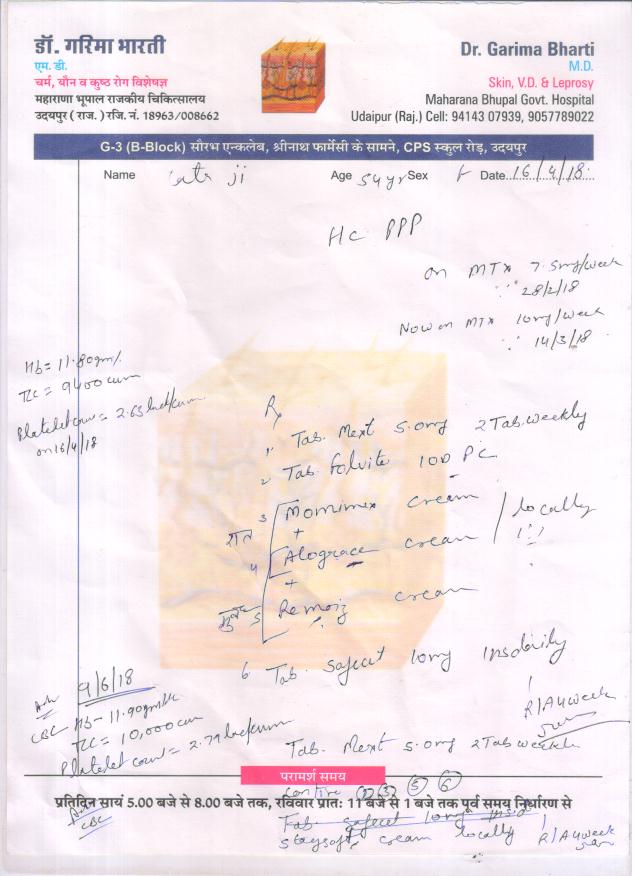 डॉ. गरिमा भारती
एम. डी.
चर्म, यौन व कुष्ठ रोग विशेषज्ञ
महाराणा भूपाल राजकीय चिकित्सालय
उदयपुर ( राज. ) रजि. नं. 18963/008662
Dr. Garima Bharti
M.D.
Skin, V.D. & Leprosy
Maharana Bhupal Govt. Hospital
Udaipur (Raj.) Cell: 94143 07939, 9057789022
G-3 (B-Block) सौरभ एन्कलेब, श्रीनाथ फार्मेसी के सामने, CPS स्कुल रोड़, उदयपुर
Name ji Age 54 yr Sex F Date 16/4/18
H/c PPP
on MTX 7.5mg/week
28/2/18
Now on MTX 10mg/week
14/3/18
Hb = 11.80gm%
TLC = 9400 cumm
Platelet count = 2.63 lac/cumm
on 16/4/18
Rx
1. Tab. Mext 5.0mg 2 Tab. weekly
2 Tab. Folvite 1OD PC
3 Momimex cream
+
4 Alograce cream / locally
+
रात
सुबह
5 Remoiz cream
6 Tab.
10mg
R/A 4 week
9/6/18
CBC Hb - 11.90gm%
TLC = 10,000 cumm
Platelet count = 2.79 lac/cumm
Tab. Mext 5.0mg 2 Tab weekly
परामर्श समय
प्रतिदिन सायं 5.00 बजे से 8.00 बजे तक, रविवार प्रातः 11 बजे से 1 बजे तक पूर्व समय निर्धारण से
CBC
Staysoft cream locally
R/A 4 week